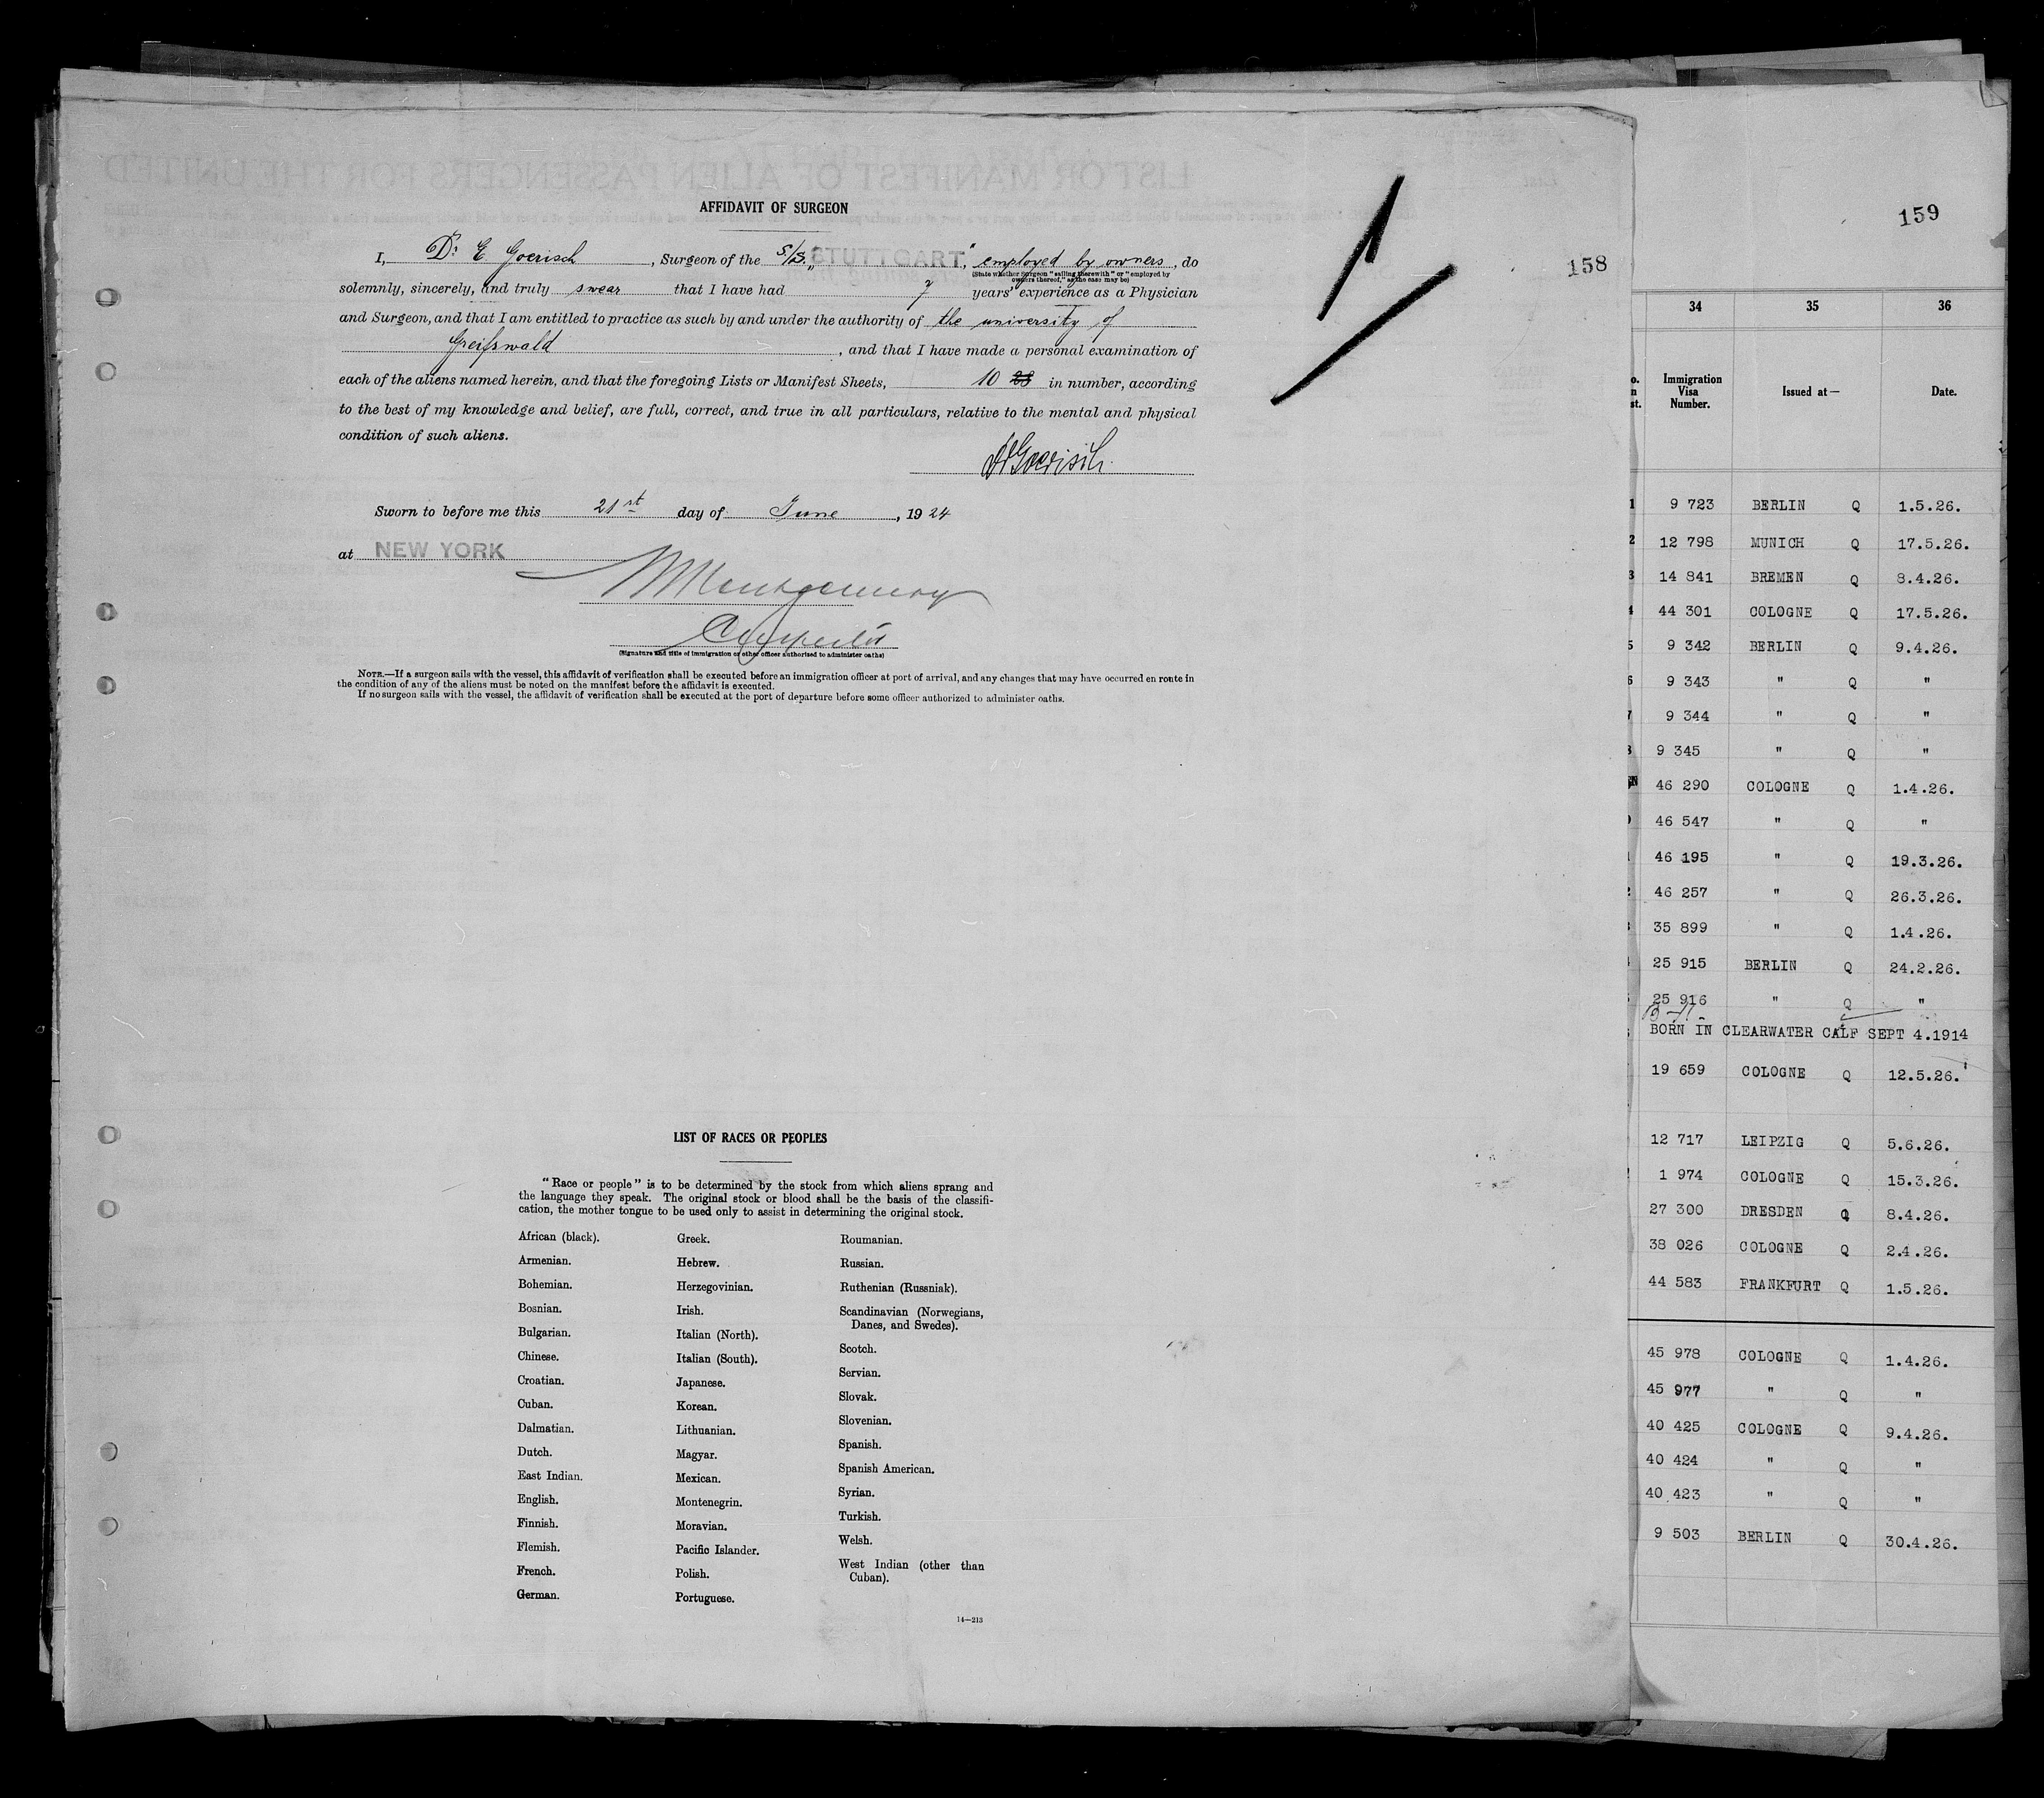 AFFIDAVIT OF SURGEON
I, Dr E Goerisch, Surgeon of the S/S. "STUTTGART," employed by owners, do
(State whether surgeon "sailing therewith" or "employed by
owners thereof," as the case may be)
solemnly, sincerely, and truly swear that I have had 7 years' experience as a Physician
and Surgeon, and that I am entitled to practice as such by and under the authority of the university of
Greifswald, and that I have made a personal examination of
each of the aliens named herein, and that the foregoing Lists or Manifest Sheets, 10 28 in number, according
to the best of my knowledge and belief, are full, correct, and true in all particulars, relative to the mental and physical
condition of such aliens.
Dr Goerisch.
Sworn to before me this 21st day of June, 1924
at NEW YORK
Montgomery
(Signature and title of immigration or other officer authorized to administer oaths)
NOTE.—If a surgeon sails with the vessel, this affidavit of verification shall be executed before an immigration officer at port of arrival, and any changes that may have occurred en route in
the condition of any of the aliens must be noted on the manifest before the affidavit is executed.
If no surgeon sails with the vessel, the affidavit of verification shall be executed at the port of departure before some officer authorized to administer oaths.
158
LIST OF RACES OR PEOPLES
"Race or people" is to be determined by the stock from which aliens sprang and
the language they speak. The original stock or blood shall be the basis of the classifi-
cation, the mother tongue to be used only to assist in determining the original stock.
African (black).
Armenian.
Bohemian.
Bosnian.
Bulgarian.
Chinese.
Croatian.
Cuban.
Dalmatian.
Dutch.
East Indian.
English.
Finnish.
Flemish.
French.
German.
Greek.
Hebrew.
Herzegovinian.
Irish.
Italian (North).
Italian (South).
Japanese.
Korean.
Lithuanian.
Magyar.
Mexican.
Montenegrin.
Moravian.
Pacific Islander.
Polish.
Portuguese.
Roumanian.
Russian.
Ruthenian (Russniak).
Scandinavian (Norwegians,
Danes, and Swedes).
Scotch.
Servian.
Slovak.
Slovenian.
Spanish.
Spanish American.
Syrian.
Turkish.
Welsh.
West Indian (other than
Cuban).
14—213
159
34 35 36
Immigration
Visa
Number.
Issued at—
Date.
1 9 723 BERLIN Q 1.5.26.
2 12 798 MUNICH Q 17.5.26.
3 14 841 BREMEN Q 8.4.26.
4 44 301 COLOGNE Q 17.5.26.
5 9 342 BERLIN Q 9.4.26.
6 9 343 " Q "
7 9 344 " Q "
8 9 345 " Q "
46 290 COLOGNE Q 1.4.26.
46 547 " Q "
46 195 " Q 19.3.26.
46 257 " Q 26.3.26.
35 899 " Q 1.4.26.
25 915 BERLIN Q 24.2.26.
25 916 " Q "
BORN IN CLEARWATER CALF SEPT 4.1914
19 659 COLOGNE Q 12.5.26.
12 717 LEIPZIG Q 5.6.26.
1 974 COLOGNE Q 15.3.26.
27 300 DRESDEN Q 8.4.26.
38 026 COLOGNE Q 2.4.26.
44 583 FRANKFURT Q 1.5.26.
45 978 COLOGNE Q 1.4.26.
45 977 " Q "
40 425 COLOGNE Q 9.4.26.
40 424 " Q "
40 423 " Q "
9 503 BERLIN Q 30.4.26.